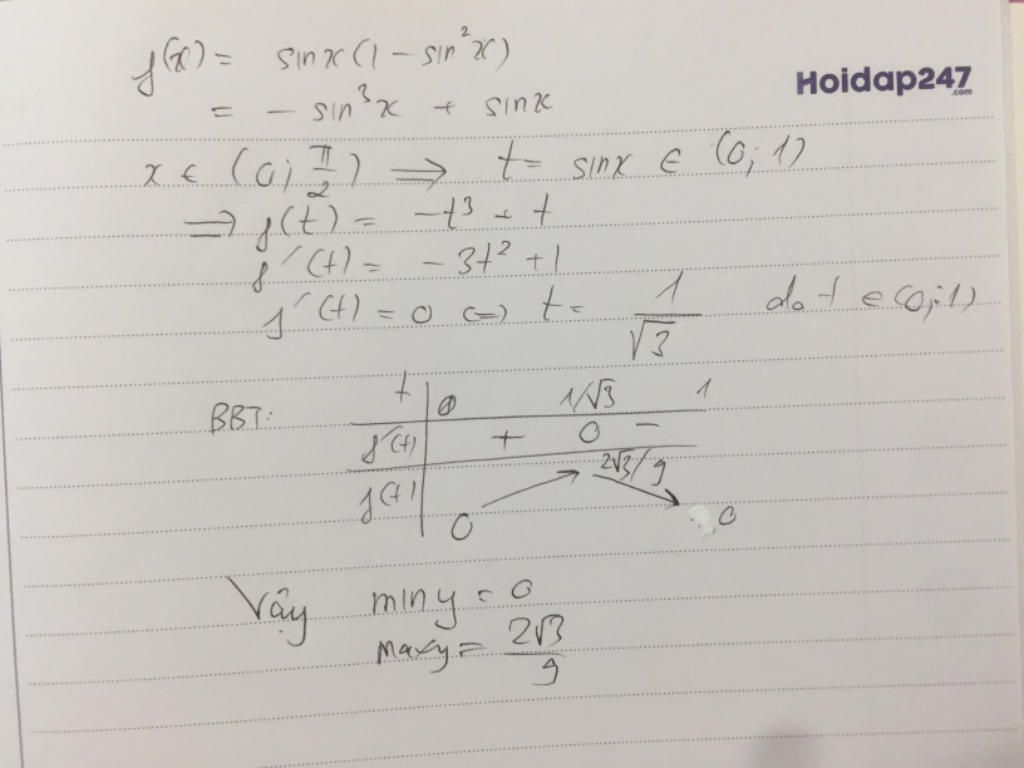 f(x) = sinx(1 - sin²x)
Hoidap247
.com
= - sin³x + sinx
x ∈ (0; π/2) ⟹ t = sinx ∈ (0; 1)
⟹ f(t) = -t³ + t
f'(t) = -3t² + 1
f'(t) = 0 ⇔ t = 1/√3 do t ∈ (0; 1)
BBT: t 0 1/√3 1
f'(t) + 0 -
f(t) 0 2√3/9 0
Vậy min y = 0
max y = 2√3/9